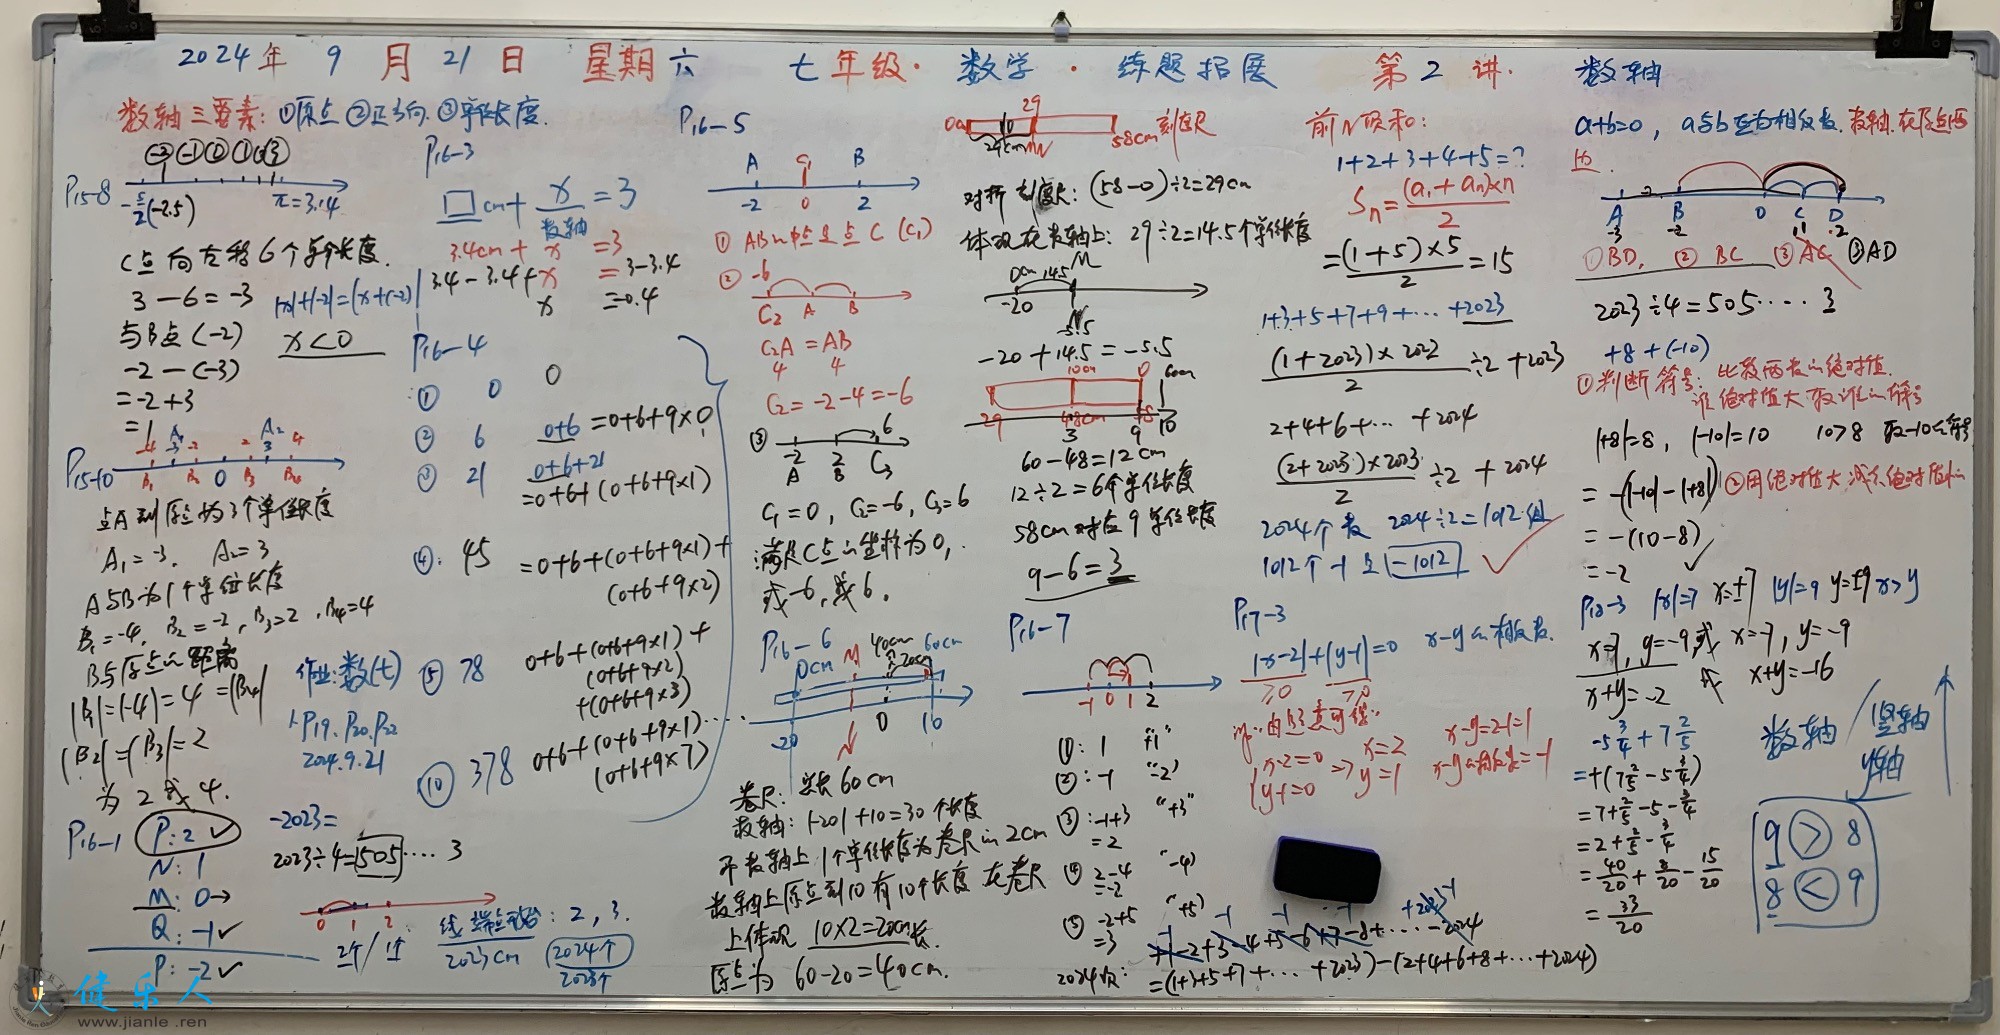 2024年 9 月 21 日 星期六 七年级· 数学 · 练题拓展 第 2 讲· 数轴
数轴三要素: ①原点 ②正方向 ③单位长度.
P15-8
-5/2(-2.5) π=3.14
C点向左移6个单位长度.
3-6=-3
与B点(-2)
-2-(-3)
=-2+3
=1
|x|+|-2|=|x+(-2)|
x<0
P15-10
-4 A1 -2 2 A2 4
-3 0 3
B1 B2 B3 B4
点A到原点为3个单位长度
A1=-3, A2=3
A与B为1个单位长度
B1=-4, B2=-2, B3=2, B4=4
B与原点的距离
|B1|=|-4|=4=|B4|
|B2|=|B3|=2
为2或4.
作业:数(七)
P19、P20、P22
2024.9.21
P16-1
P:2 ✓
N:1
M:0→
Q:-1 ✓
P:-2 ✓
-2023=
2023÷4=505····3
0 1 2
2个/1个
线段端点 : 2, 3.
2023cm 2024个
2023个
P16-3
□cm+x/数轴=3
3.4cm+x=3
3.4-3.4+x=3-3.4
x=-0.4
P16-4
① 0 0
② 6 0+6=0+6+9×0
③ 21 0+6+21
=0+6+(0+6+9×1)
④ 45 =0+6+(0+6+9×1)+
(0+6+9×2)
⑤ 78 0+6+(0+6+9×1)+
(0+6+9×2)
+(0+6+9×3)
⑩ 378 0+6+(0+6+9×1)····
(0+6+9×7)
P16-5
A C1 B
-2 0 2
① AB的中点是点C (C1)
② -6
C2 A B
C2A=AB
4 4
C2=-2-4=-6
③ 6
-2 2
A B C3
C1=0, C2=-6, C3=6
满足C点的坐标为0,
或-6,或6.
P16-6
0cm M 40cm 20cm 60cm
-20 N 0 10
卷尺: 60cm
数轴: |-20|+10=30个长度
即数轴上1个单位长度为卷尺的2cm
数轴上原点到10有10个长度 在卷尺
上体现 10×2=20cm长.
原点为 60-20=40cm.
0cm 29 58cm 刻度尺
29cm
对折刻度尺: (58-0)÷2=29cm
体现在数轴上: 29÷2=14.5个单位长度
0cm 14.5 M
-20 -5.5
-20+14.5=-5.5
29 48cm 58 60cm
3 9 10
60-48=12cm
12÷2=6个单位长度
58cm对应9单位长度
9-6=3
P16-7
-1 0 1 2
①: 1 "+1"
②: -1 "-2"
③: -1+3 "+3"
=2
④ 2-4 "-4"
=-2
⑤ -2+5 "+5"
=3
2024次:
1-2+3-4+5-6+7-8+····-2024
=(1+3+5+7+···+2023)-(2+4+6+8+···+2024)
前N项和:
1+2+3+4+5=?
Sn=(a1+an)×n/2
=(1+5)×5/2=15
1+3+5+7+9+···+2023
(1+2023)×2022/2÷2+2023
2+4+6+···+2024
(2+2023)×2023/2÷2+2024
2024个数 2024÷2=1012组
1012个-1是-1012 ✓
P17-3
|x-2|+|y-1|=0 x-y的相反数.
≥0 ≥0
x-2=0 ⇒ x=2 x-y=2-1=1
y-1=0 y=1 x-y的相反数=-1
a+b=0, a与b互为相反数. 数轴.在原点两
边.
A B 0 C D
-3 -2 1 2
①BD, ②BC ③AC ③AD
2023÷4=505····3
+8+(-10)
①判断符号: 比较两数的绝对值.
谁绝对值大取谁的符号
|+8|=8, |-10|=10 10>8 取-10的符号
=-(|-10|-|+8|) ②用绝对值大减去绝对值小
=-(10-8)
=-2 ✓
P18-3 |x|=7 x=±7 |y|=9 y=±9 x>y
x=7, y=-9,或 x=-7, y=-9
x+y=-2 或 x+y=-16
-5 3/4+7 2/5
=+(7 2/5-5 3/4)
=7+2/5-5-3/4
=2+2/5-3/4
=40/20+8/20-15/20
=33/20
数轴/竖轴
y轴
9 > 8
8 < 9
健乐人
www.jianle.ren